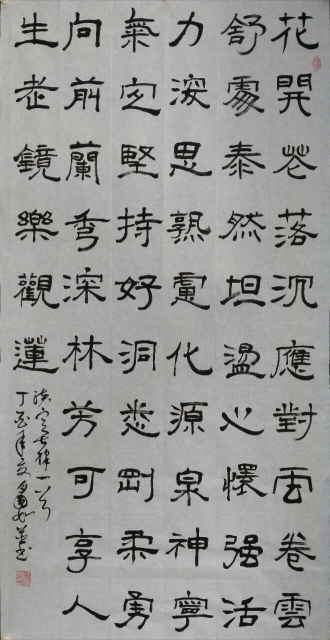 花開花落沉應對云卷雲
舒處泰然坦盪心懷强活
力深思熟慮化源泉神寧
氣定堅持好洞悉剛柔勇
向前蘭秀深林芳可享人
生老鏡樂觀蓮
七律一首
丁酉年夏